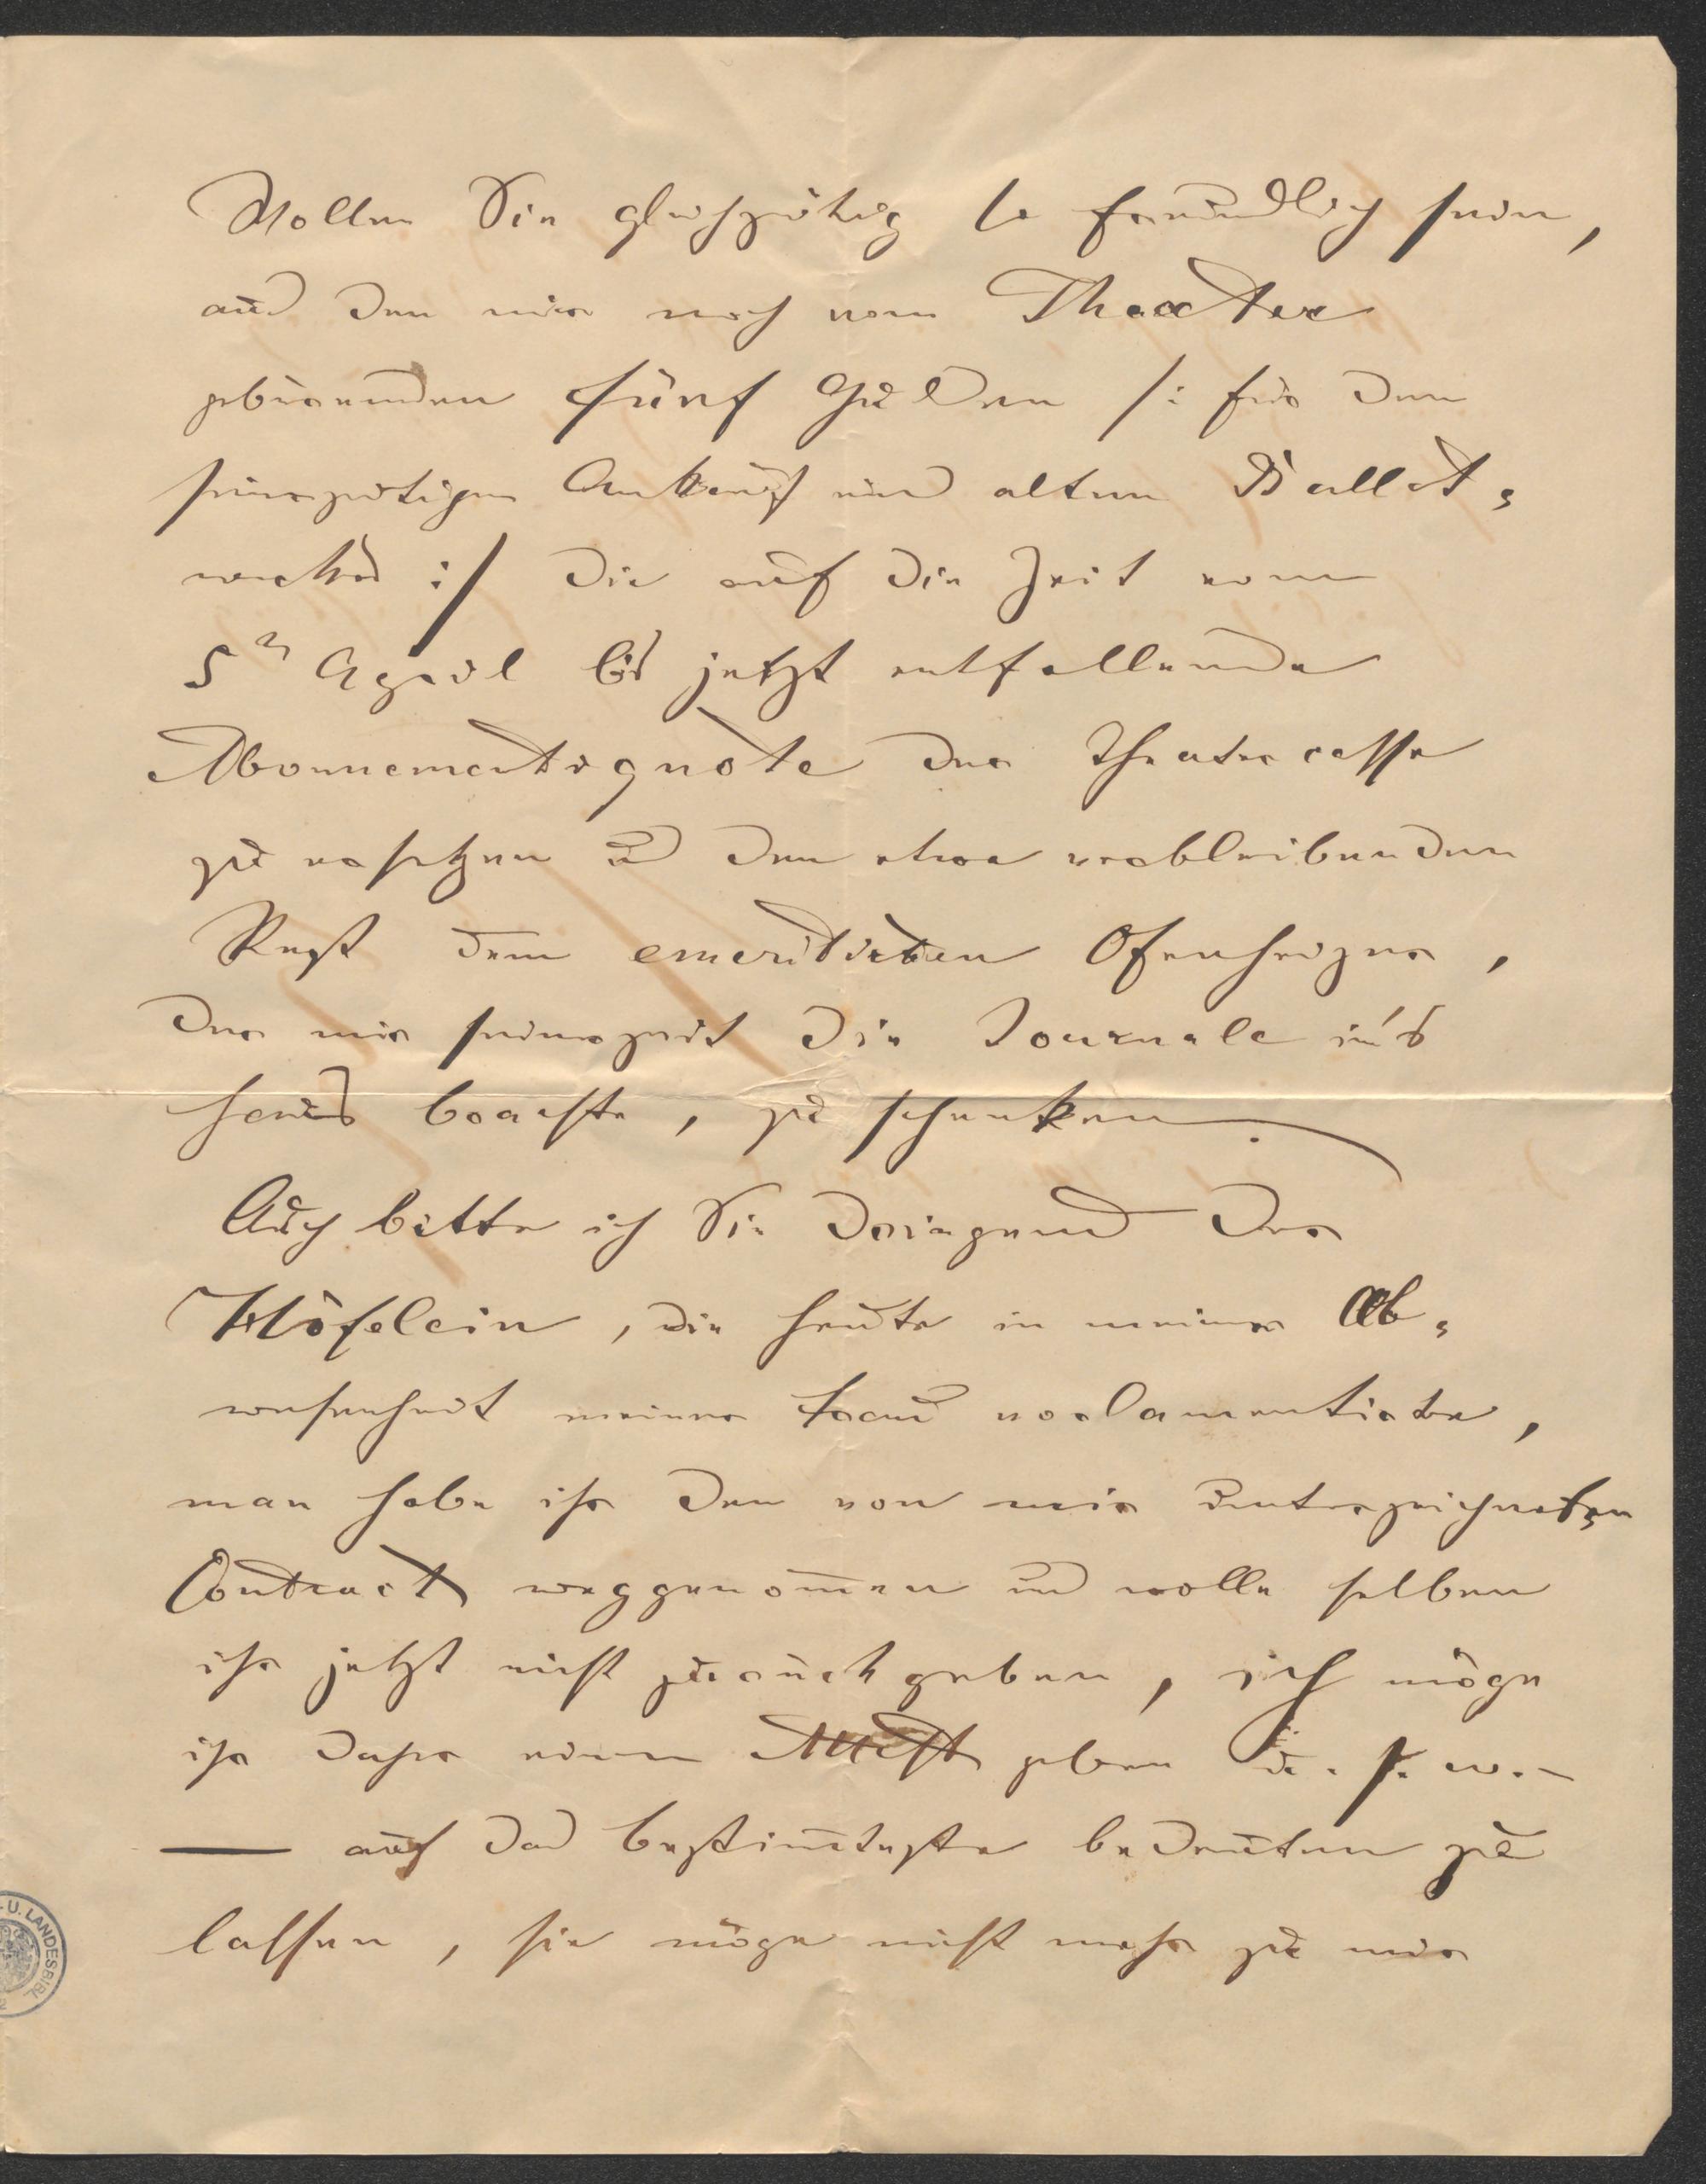 Wollen Sie gleichzeitig so freundlich sein,
aus den mir noch vom Theater
gebürenden fünf Gulden /: für den
seinerzeitigen Ankauf eines alten Ballet-
werkes :/ die auf die Zeit vom
5n April bis jetzt entfallende
Abonnementsquote der Theatercasse
zu ersetzen und den etwa verbleibenden
Rest dem emeritirten Ofenheizer,
der mir seinerzeit die Journale in's
Haus brachte, zu schenken.
Auch bitte ich Sie dringend der
Höfelein, die heute in meiner Ab-
wesenheit meiner Frau vorlamentirte,
man habe ihr den von mir unterzeichneten
Contract weggenom̅en und wolle selben
ihr jetzt nicht zurückgeben, ich möge
ihr daher einen Attest geben u. s. w. –
— auf das bestim̅teste bedeuten zu
lassen, sie möge nicht mehr zu mir
U. LANDESBIBL